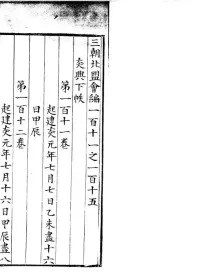 三朝北盟會編一百十一之一百十五
炎興下帙
第一百十一卷
起建炎元年七月七日乙未盡十六
日甲辰
第一百十二卷
起建炎元年七月十六日甲辰盡八